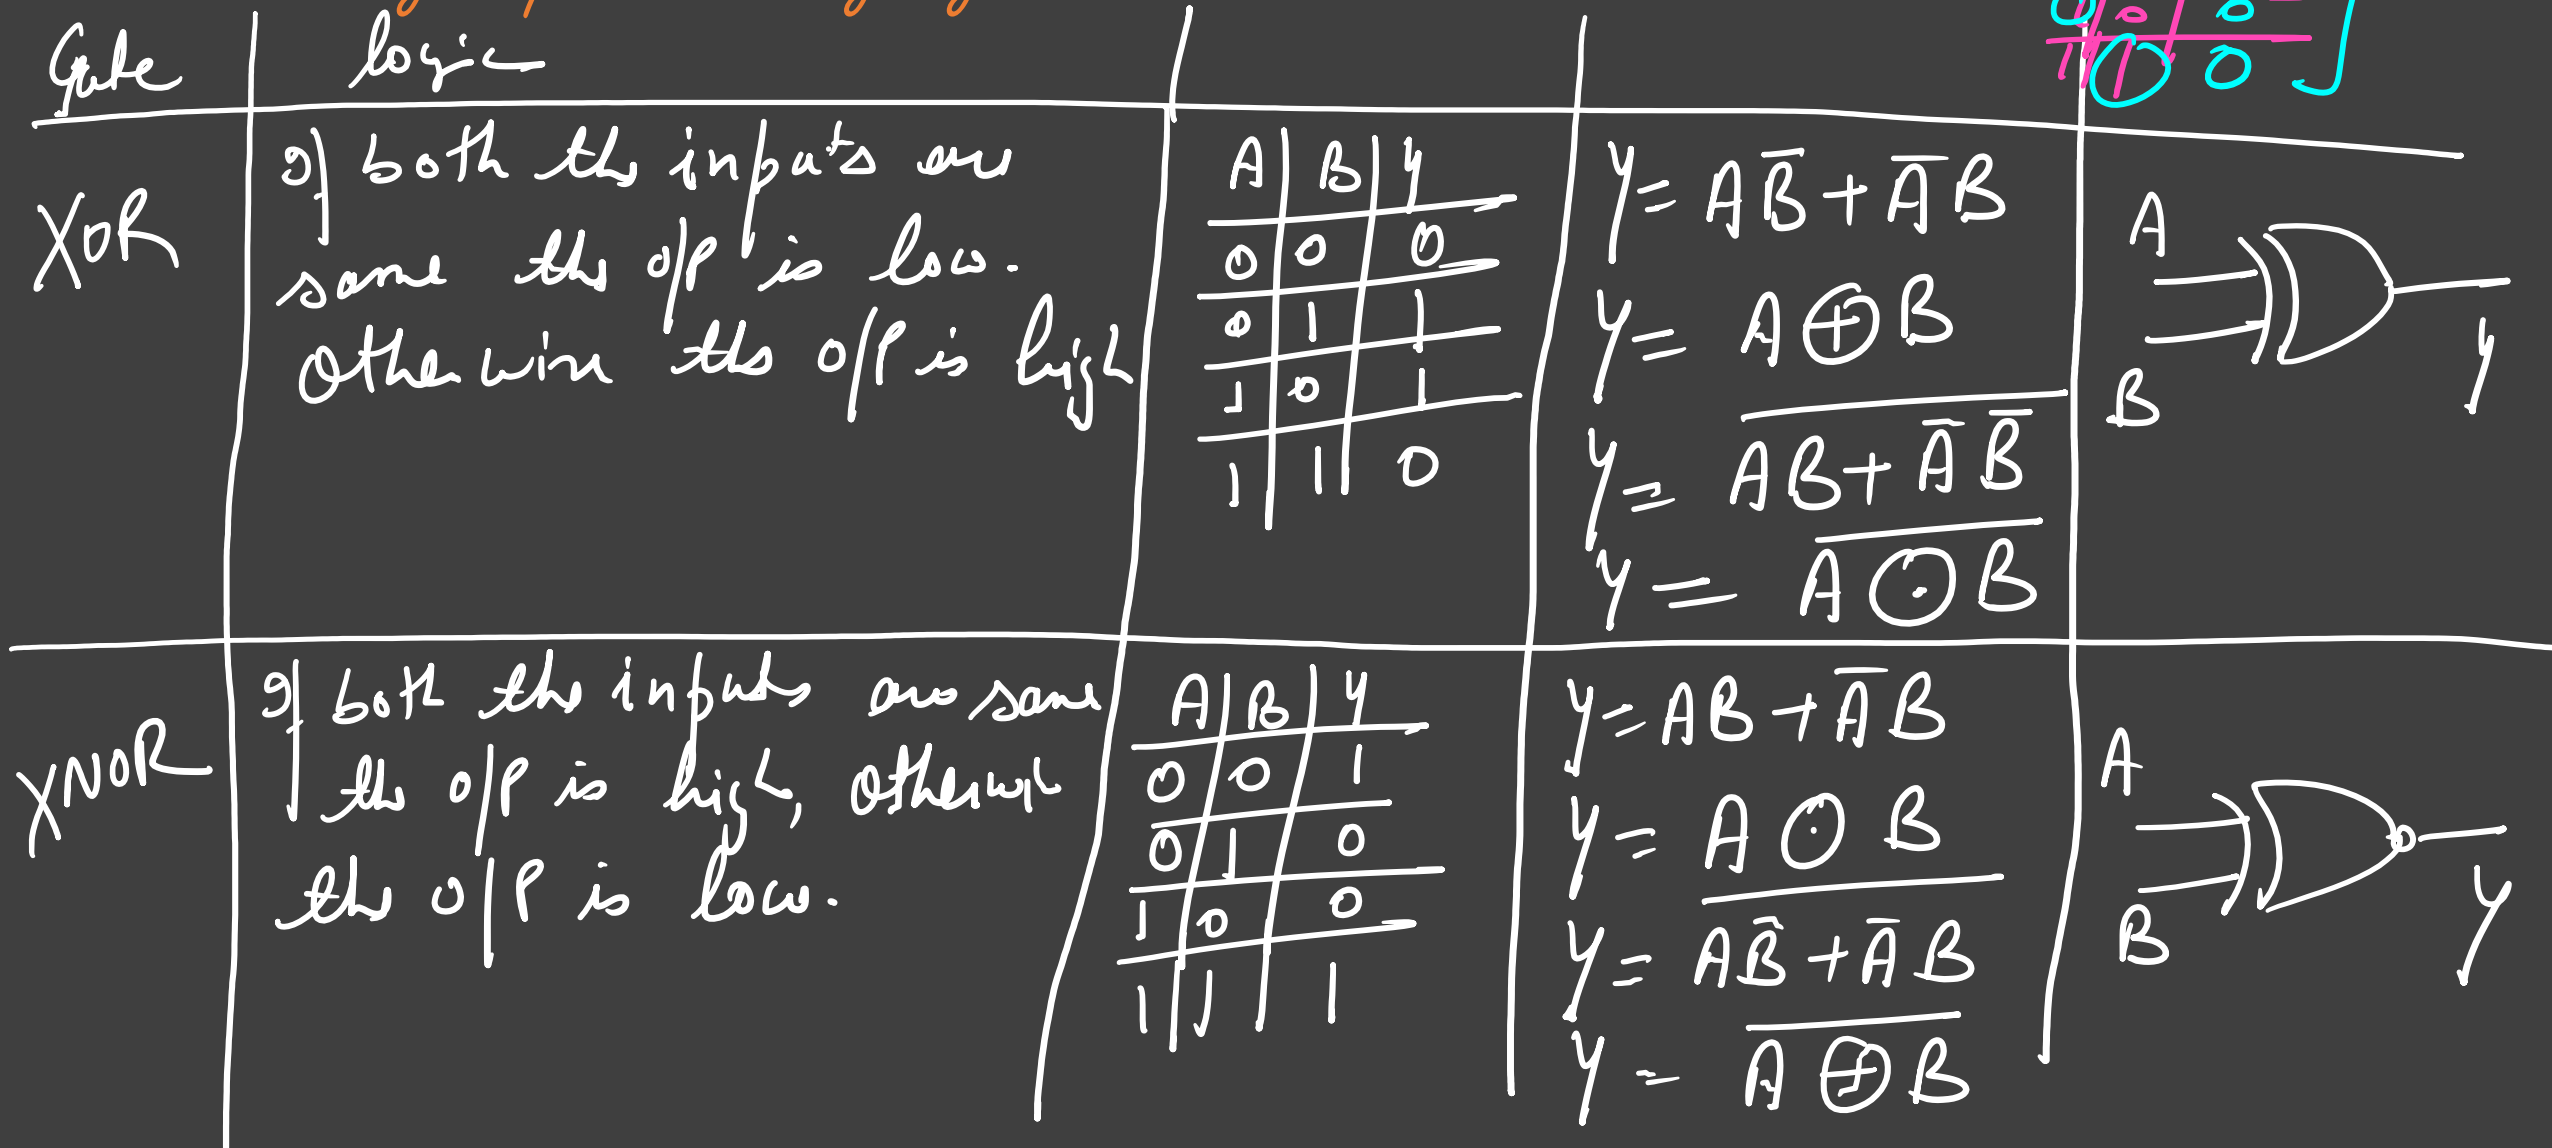 Gate logic
XOR
If both the inputs are
same the o/p is low.
Otherwise the o/p is high
A B y
0 0 0
0 1 1
1 0 1
1 1 0
y = AB̅ + A̅B
y = A ⊕ B
y = \overline{AB + A̅ B̅}
y = \overline{A ⊙ B}
A
B
y
XNOR
If both the inputs are same
the o/p is high, otherwise
the o/p is low.
A B y
0 0 1
0 1 0
1 0 0
1 1 1
y = AB + A̅B
y = A ⊙ B
y = \overline{AB̅ + A̅B}
y = \overline{A ⊕ B}
A
B
y